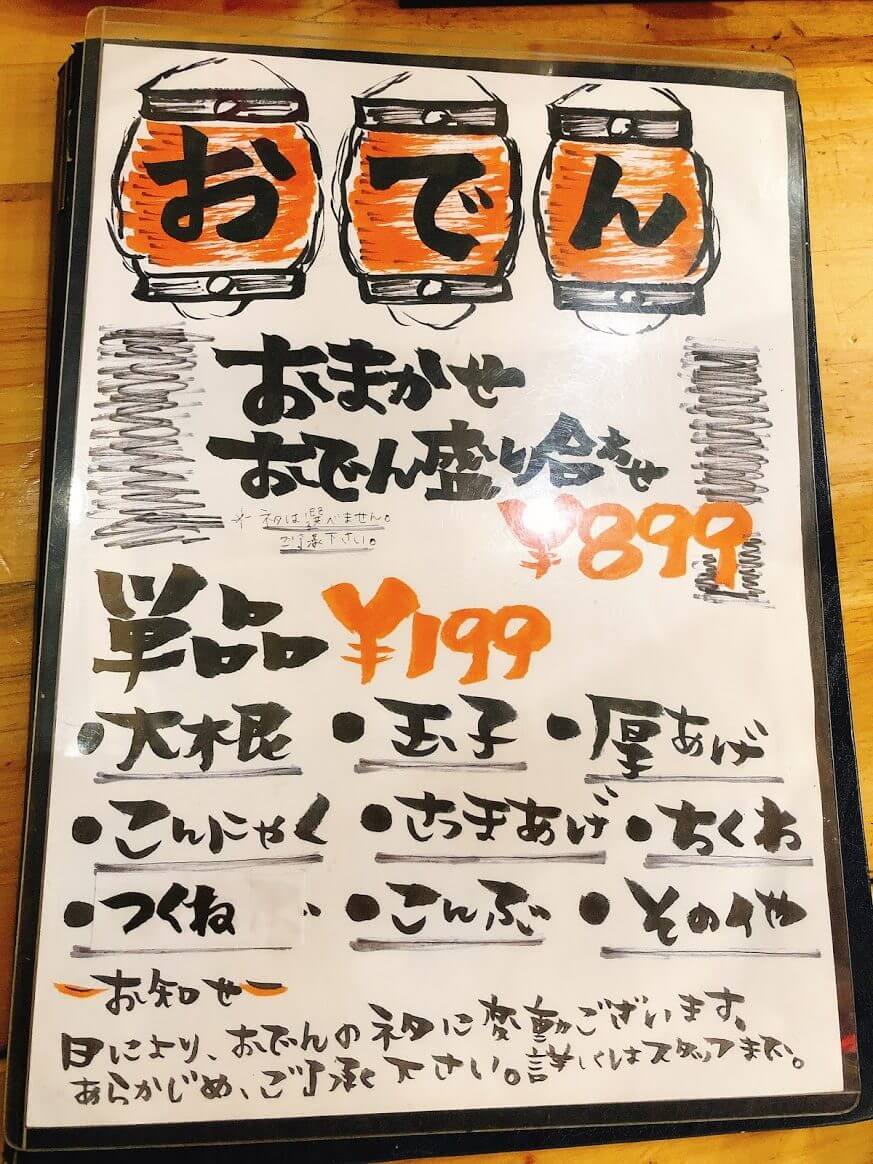 おでん
おまかせ
おでん盛り合わせ
※ネタは選べません。
ご了承下さい。
¥899
単品 ¥199
・大根 ・玉子 ・厚あげ
・こんにゃく ・さつまあげ ・ちくわ
・つくね ・こんぶ ・その他
お知らせ
日により、おでんのネタに変動ございます。
あらかじめ、ご了承下さい。詳しくはスタッフまで。